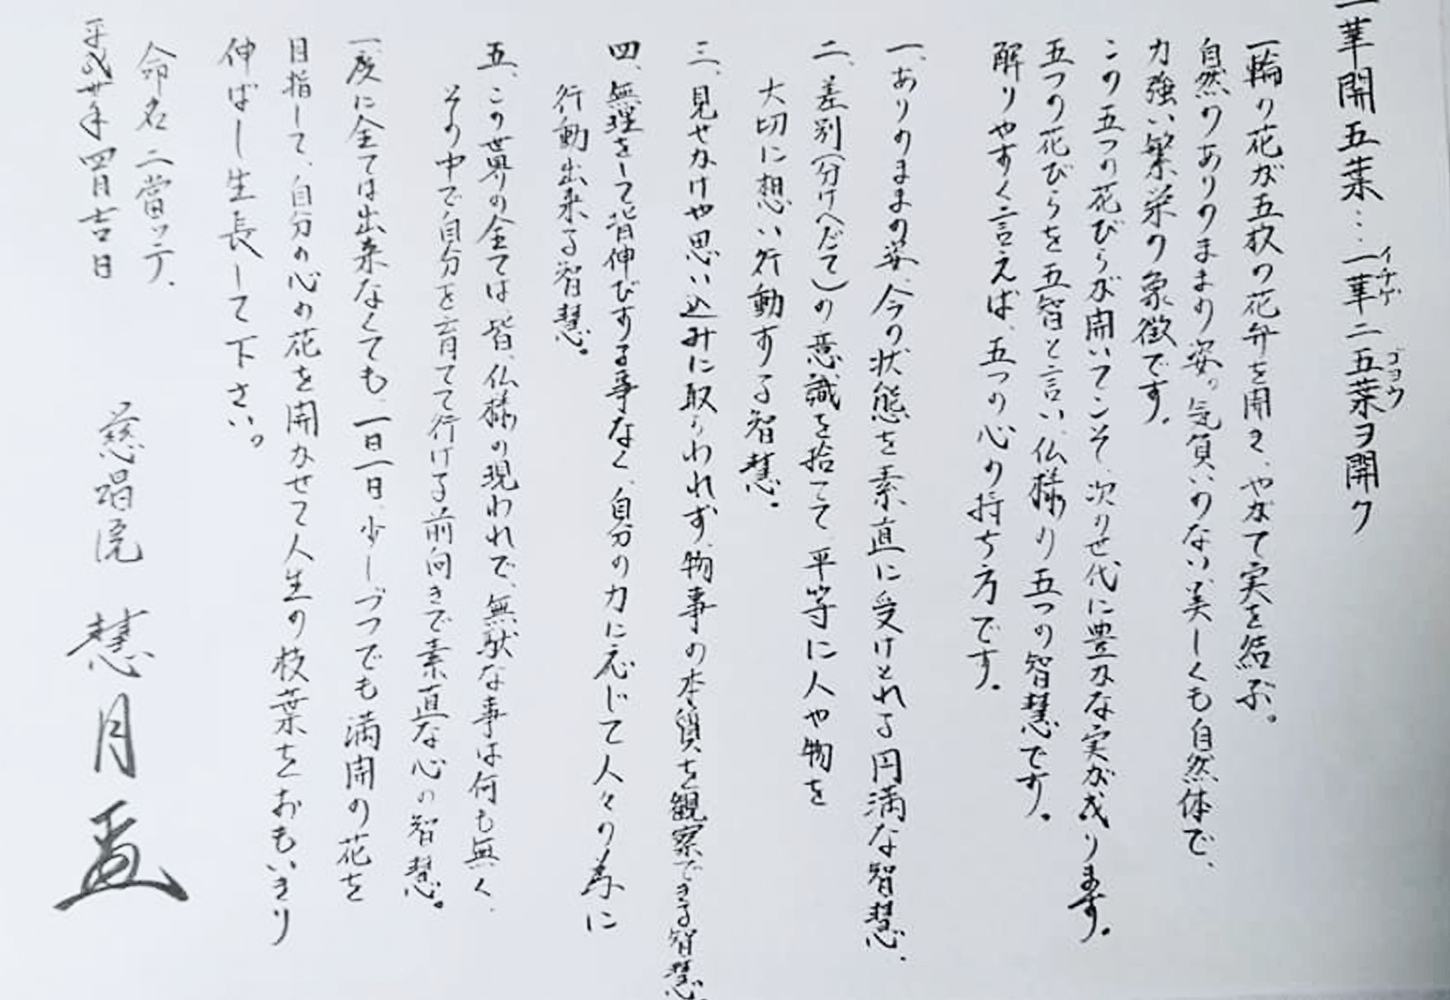 一華開五葉…一華ニ五葉ヲ開ク
イチゲ ゴヨウ
一輪の花が五枚の花弁を開き、やがて実を結ぶ。
自然のありのままの姿。気負いのない美しくも自然体で、
力強い繁栄の象徴です。
この五つの花びらが開いてこそ、次の世代に豊かな実が成ります。
五つの花びらを五智と言い、仏様の五つの智慧です。
解りやすく言えば、五つの心の持ち方です。
一、ありのままの姿、今の状態を素直に受けとれる円満な智慧、
二、差別(分けへだて)の意識を捨てて、平等に人や物を
大切に想い行動する智慧。
三、見せかけや思い込みに取らわれず、物事の本質を観察できる智慧。
四、無理をして背伸びする事なく、自分の力に応じて人々の為に
行動出来る智慧。
五、この世界の全ては皆、仏様の現われで、無駄な事は何も無く、
その中で自分を育てて行ける前向きで素直な心の智慧。
一度に全ては出来なくても、一日一日、少しづつでも満開の花を
目指して、自分の心の花を開かせて人生の枝葉をおもいきり
伸ばし生長して下さい。
命名ニ當ッテ、
平成廿年四月吉日
慈 院 慧月